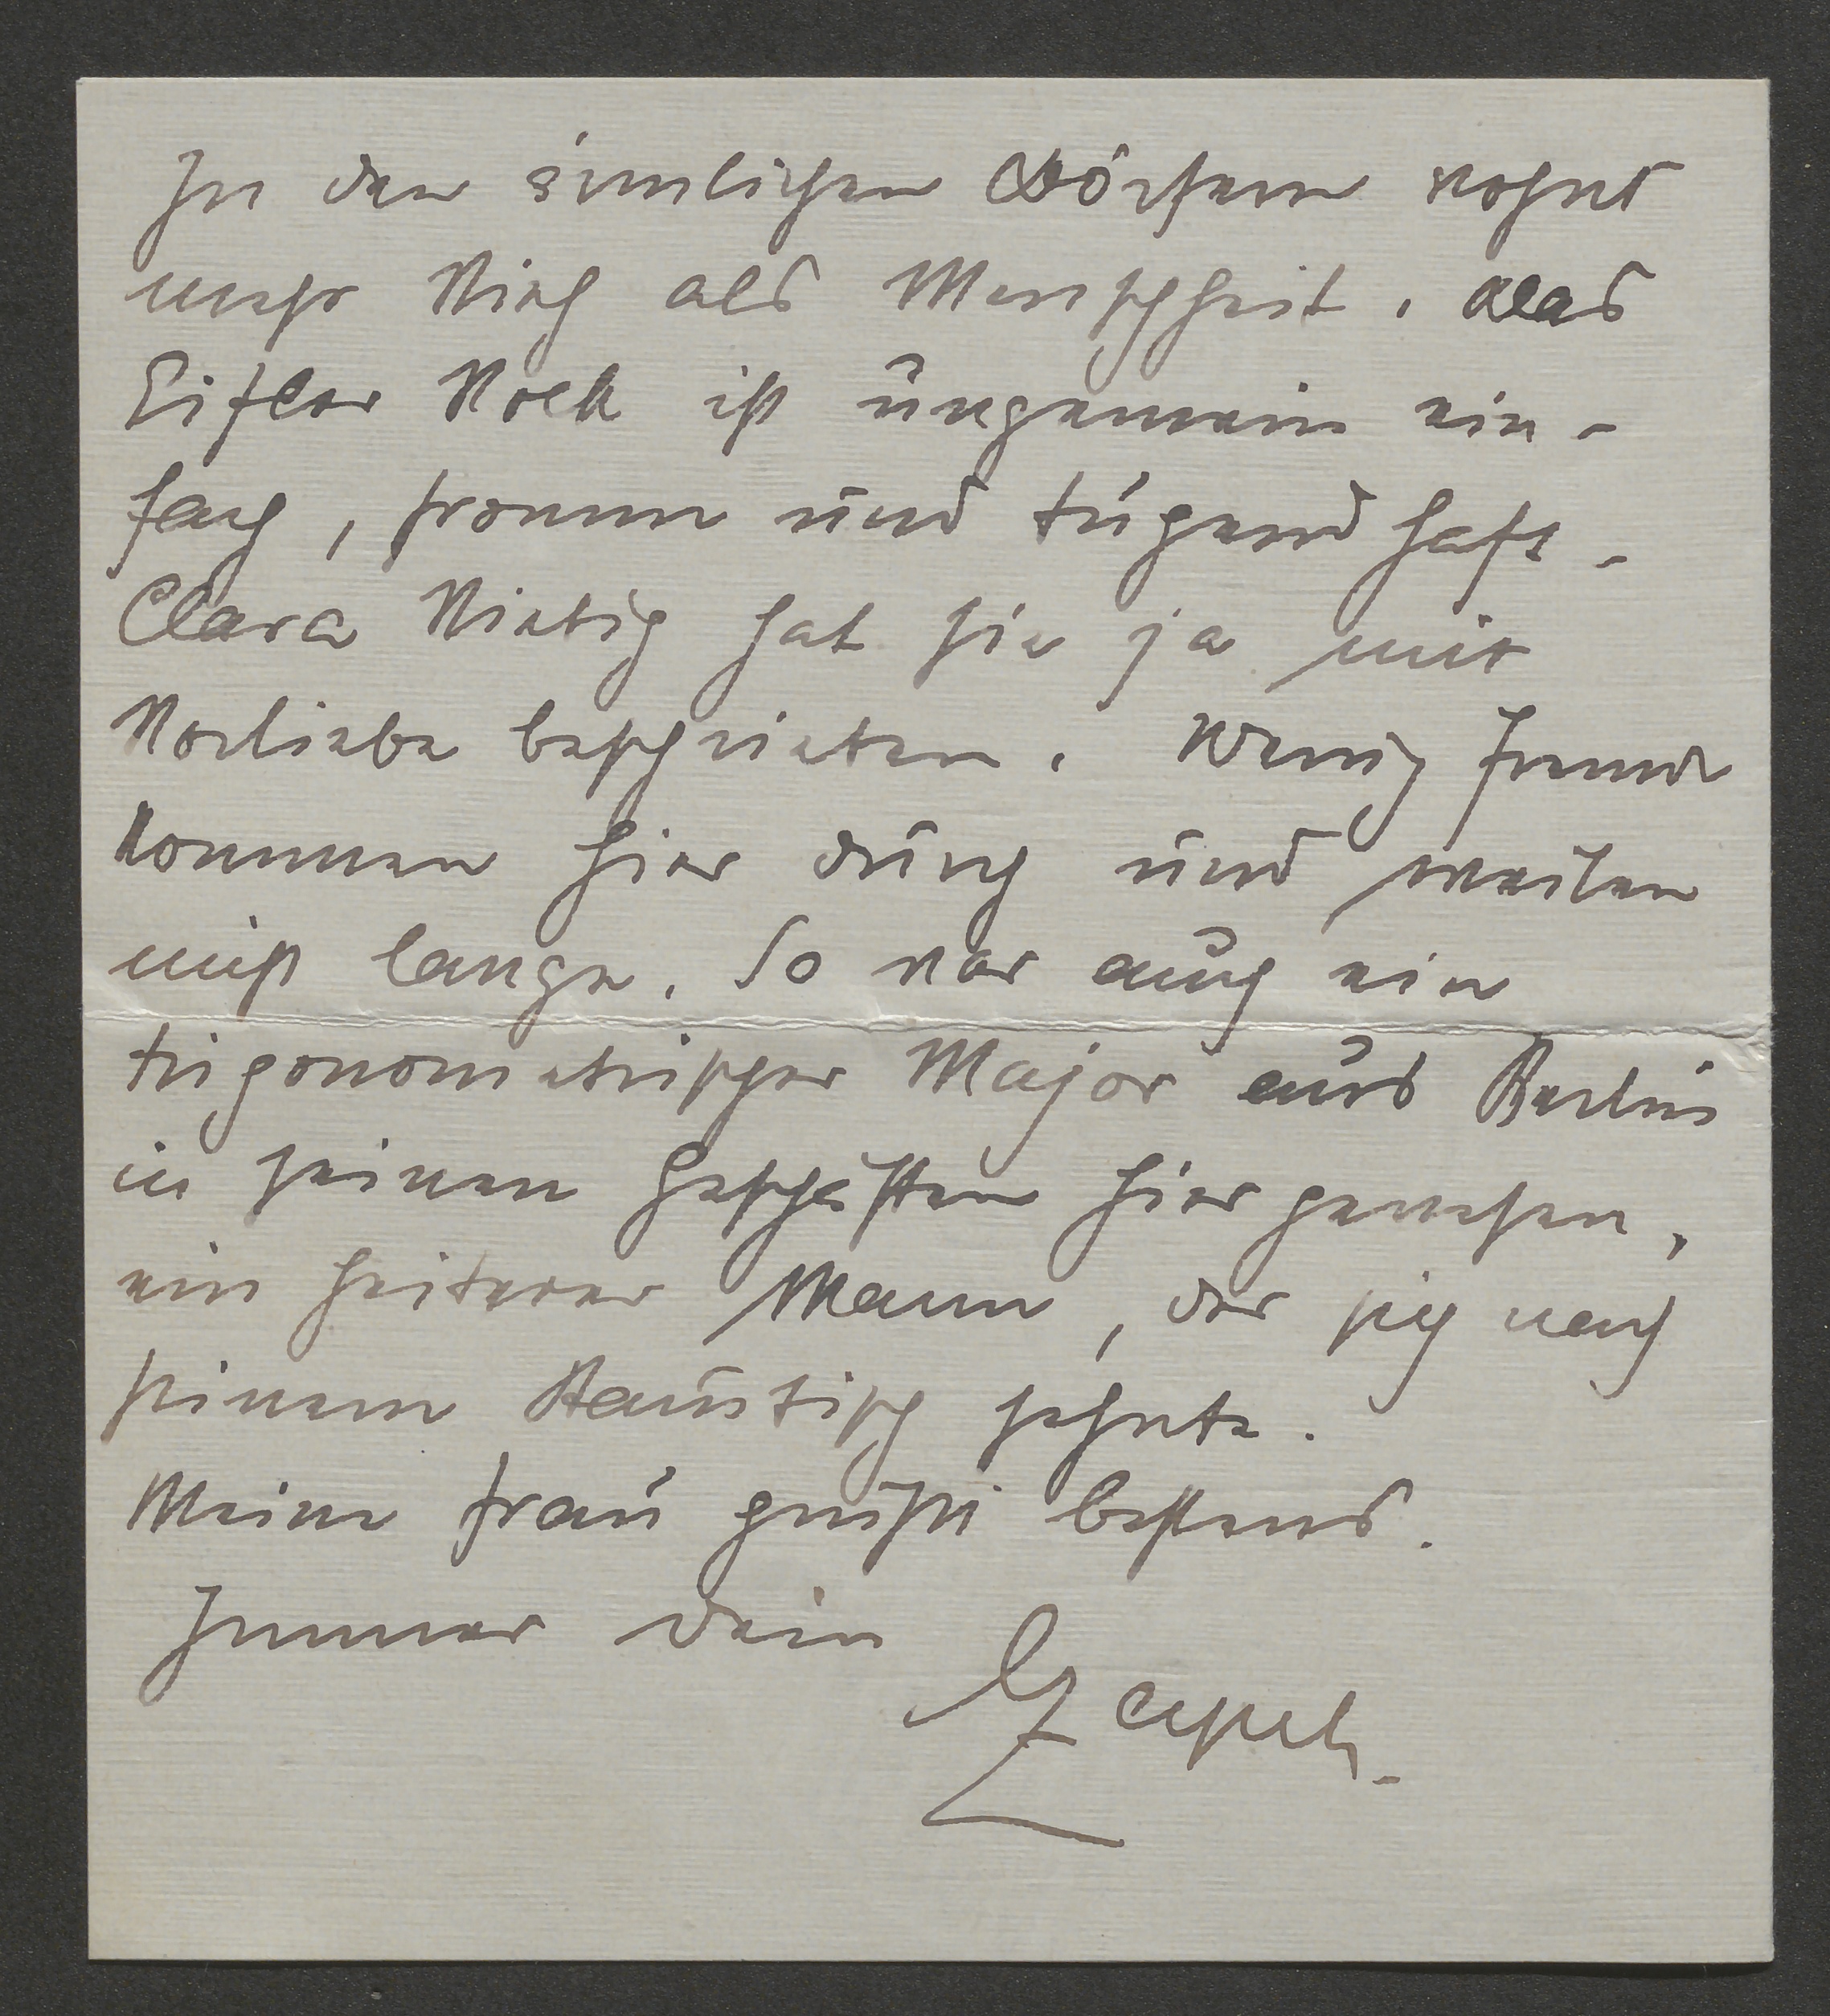 In den ärmlichen Dörfern wohnt
mehr Vieh als Menschheit. Das
Eifler Volk ist ungemein ein-
fach, fromm und tugendhaft.
Clara Viebig hat sie ja mit
Vorliebe beschrieben. Wenig Fremde
kommen hier durch und weilen
nicht lange. So war auch ein
trigonometrischer Major aus Berlin
in seinen Geschäften hier gewesen,
ein heiterer Mann, der sich nach
seinem Haustisch sehnte.
Meine Frau grüßt bestens.
Immer Dein